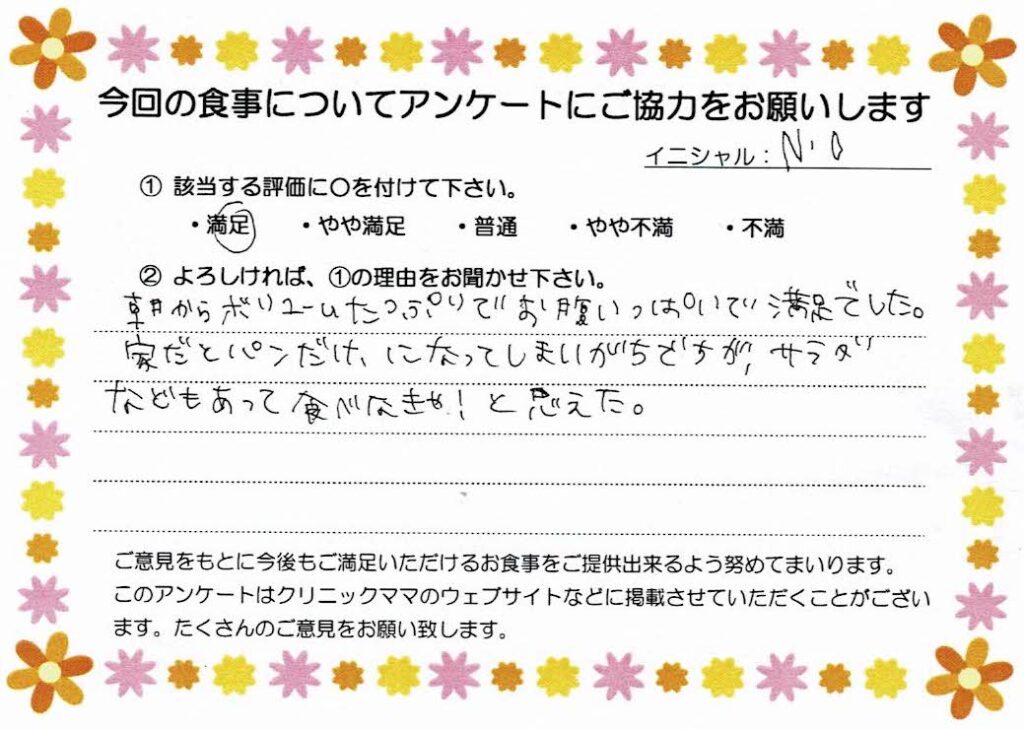 今回の食事についてアンケートにご協力をお願いします
イニシャル：N.O
① 該当する評価に〇を付けて下さい。
・満足 ・やや満足 ・普通 ・やや不満 ・不満
② よろしければ、①の理由をお聞かせ下さい。
朝からボリュームたっぷりでお腹いっぱいで満足でした。
家だとパンだけ、になってしまいがちですが、サラダ
などもあって食べなきゃ！と思えた。
ご意見をもとに今後もご満足いただけるお食事をご提供出来るよう努めてまいります。
このアンケートはクリニックママのウェブサイトなどに掲載させていただくことがござい
ます。たくさんのご意見をお願い致します。